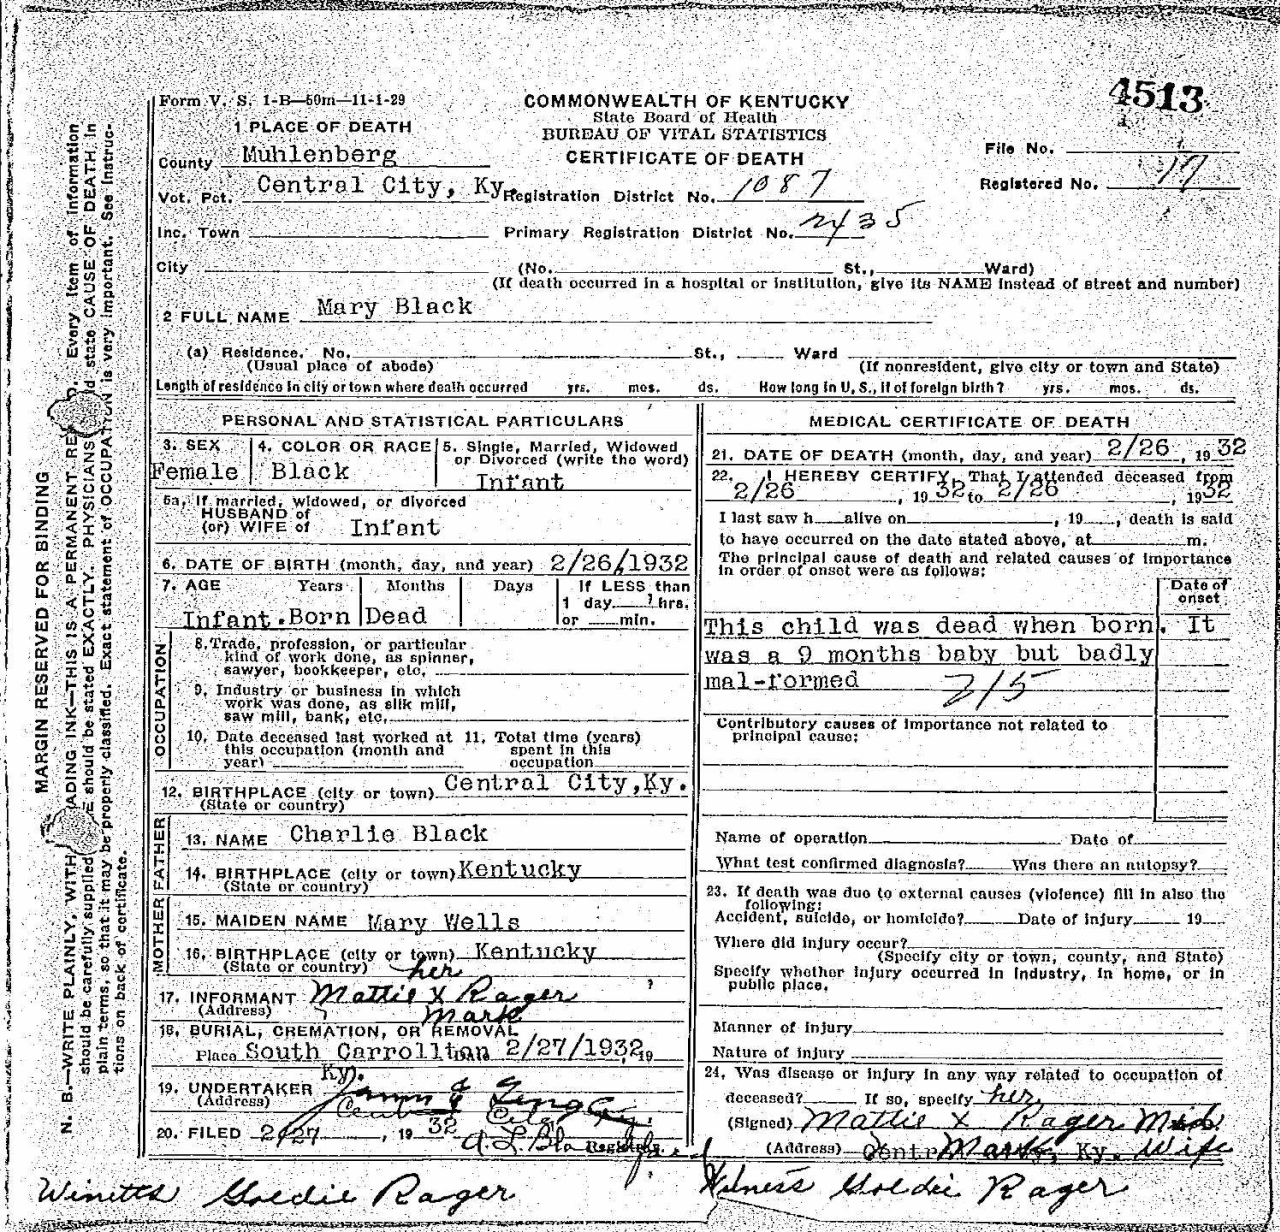 4513
Form V. S. 1-B—50m—11-1-29
COMMONWEALTH OF KENTUCKY
State Board of Health
BUREAU OF VITAL STATISTICS
CERTIFICATE OF DEATH
File No.
Registered No. 17
1 PLACE OF DEATH
County Muhlenberg
Vot. Pct. Central City, Ky.
Registration District No. 1087
Inc. Town
Primary Registration District No. 2435
City (No. St., Ward)
(If death occurred in a hospital or institution, give its NAME instead of street and number)
2 FULL NAME Mary Black
(a) Residence. No. St., Ward
(Usual place of abode) (If nonresident, give city or town and State)
Length of residence in city or town where death occurred yrs. mos. ds. How long in U, S., if of foreign birth? yrs. mos. ds.
PERSONAL AND STATISTICAL PARTICULARS
3. SEX 4. COLOR OR RACE 5. Single, Married, Widowed
or Divorced (write the word)
Female Black Infant
5a, If married, widowed, or divorced
HUSBAND of
(or) WIFE of Infant
6. DATE OF BIRTH (month, day, and year) 2/26/1932
7. AGE Years Months Days If LESS than
1 day hrs.
or min.
Infant. Born Dead
OCCUPATION
8. Trade, profession, or particular
kind of work done, as spinner,
sawyer, bookkeeper, etc.
9. Industry or business in which
work was done, as silk mill,
saw mill, bank, etc.
10. Date deceased last worked at 11. Total time (years)
this occupation (month and spent in this
year) occupation
12. BIRTHPLACE (city or town) Central City, Ky.
(State or country)
FATHER
13. NAME Charlie Black
14. BIRTHPLACE (city or town) Kentucky
(State or country)
MOTHER
15. MAIDEN NAME Mary Wells
16. BIRTHPLACE (city or town) Kentucky
(State or country)
her
17. INFORMANT Mattie X Rager
(Address) mark
18. BURIAL, CREMATION, OR REMOVAL
Place South Carrollton 2/27/1932, 19
Ky.
19. UNDERTAKER
(Address) City
20. FILED 2/27, 19 32 Registrar
MEDICAL CERTIFICATE OF DEATH
21. DATE OF DEATH (month, day, and year) 2/26, 19 32
22. I HEREBY CERTIFY, That I attended deceased from
2/26, 19 32 to 2/26, 19 32
I last saw h alive on , 19 , death is said
to have occurred on the date stated above, at m.
The principal cause of death and related causes of importance
in order of onset were as follows:
Date of
onset
This child was dead when born. It
was a 9 months baby but badly
mal-formed 215
Contributory causes of importance not related to
principal cause:
Name of operation Date of
What test confirmed diagnosis? Was there an autopsy?
23. If death was due to external causes (violence) fill in also the
following:
Accident, suicide, or homicide? Date of injury 19
Where did injury occur?
(Specify city or town, county, and State)
Specify whether injury occurred in industry, in home, or in
public place.
Manner of injury
Nature of injury
24. Was disease or injury in any way related to occupation of
deceased? If so, specify her
(Signed) Mattie X Rager Mid
(Address) Mark, Ky. Wife
Goldie Rager
Witness Goldie Rager
MARGIN RESERVED FOR BINDING
N. B.—WRITE PLAINLY, WITH ADING INK—THIS IS A PERMANENT RE Every item of information
should be carefully supplied E should be stated EXACTLY. PHYSICIANS ld state CAUSE OF DEATH in
plain terms, so that it may be properly classified. Exact statement of OCCUPATION is very important. See Instruc-
tions on back of certificate.